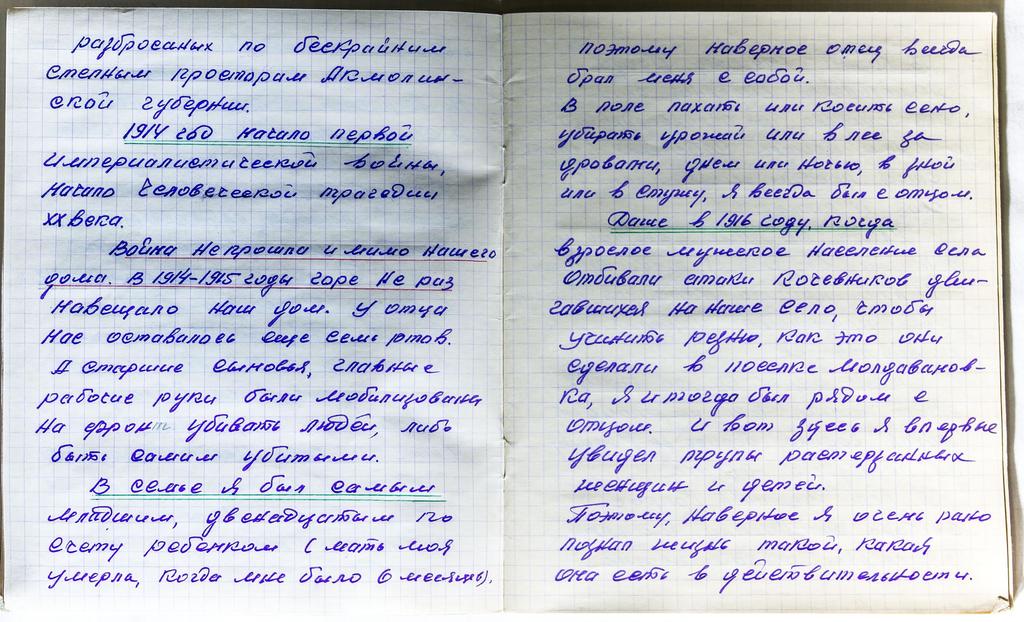 разбросаных по бескрайним
степным просторам Акмолин-
ской губернии.
1914 год начало первой
Империалистической войны,
начало человеческой трагедии
XX века.
Война не прошла и мимо нашего
дома. В 1914-1915 годы горе не раз
навещало наш дом. У отца
нас оставалось еще семь ртов.
А старшие сыновья, главные
рабочие руки были мобилизованы
на фронт убивать людей, либо
быть самим убитыми.
В семье я был самым
младшим, двенадцатым по
счету ребенком (мать моя
умерла, когда мне было 6 месяцев).
поэтому наверное отец всегда
брал меня с собой.
В поле пахать или косить сено,
убирать урожай или в лес за
дровами, днем или ночью, в зной
или в стужу, я всегда был с отцом.
Даже в 1916 году, когда
взрослое мужское население села
отбивали атаки кочевников дви-
гавшихся на наше село, чтобы
учинить резню, как это они
сделали в поселке Молдаванов-
ка, я и тогда был рядом с
отцом. И вот здесь я впервые
увидел трупы растерзанных
женщин и детей.
Поэтому, наверное я очень рано
познал жизнь такой, какая
она есть в действительности.